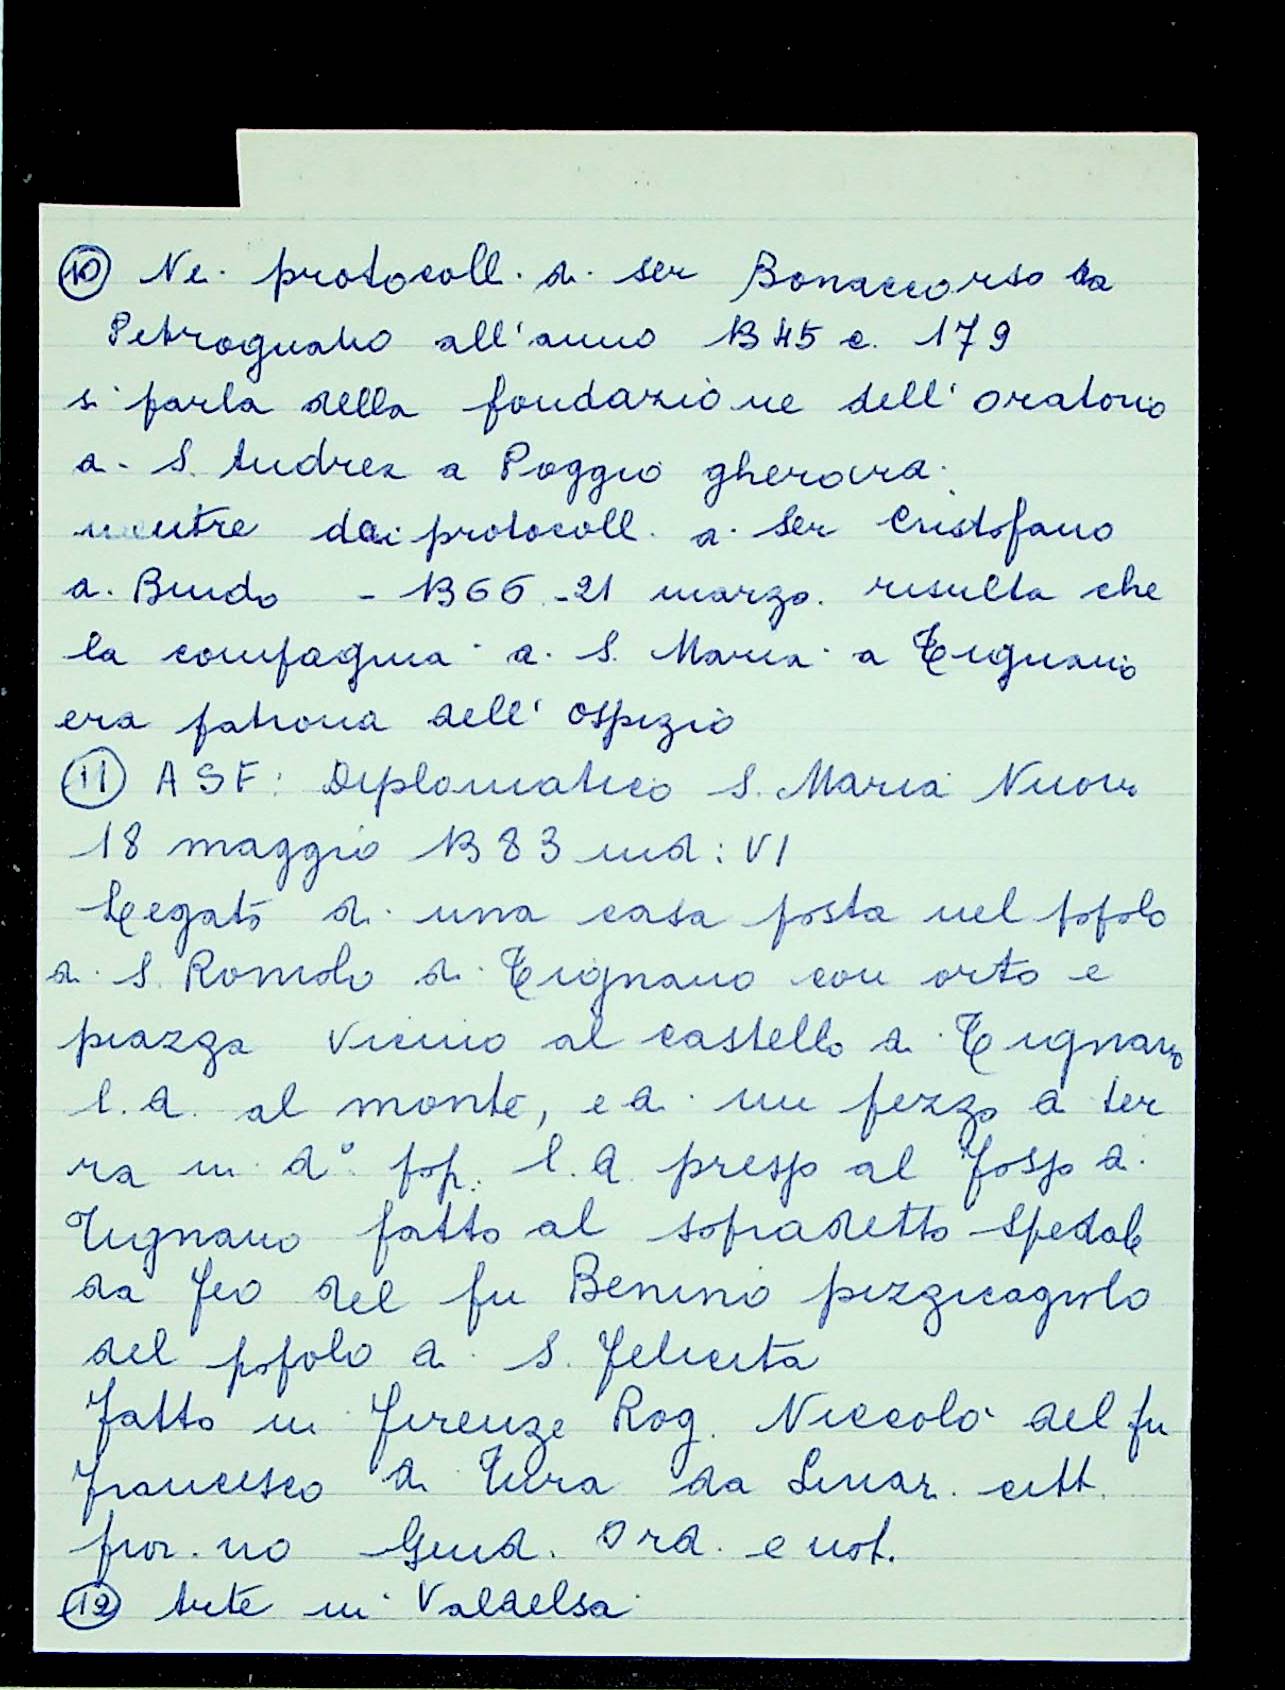 ⑩ Nei protocolli di ser Bonaccorso da
Petrognano all'anno 1345 c. 179
si parla della fondazione dell'oratorio
di S. Andrea a Poggio gherardi.
mentre dai protocolli di Ser Cristofano
di Bindo - 1366 - 21 marzo. risulta che
la compagnia di S. Maria a Tignano
era patrona dell'ospizio
⑪ ASF: Diplomatico S. Maria Nuova
18 maggio 1383 ind: VI
Legato di una casa posta nel popolo
di S. Romolo di Tignano con orto e
piazza vicino al castello di Tignano
l.d. al monte, e di un pezzo di ter
ra in d° pop. l.d. presso al fosso di
Tignano fatto al sopradetto spedale
da feo del fu Benino pizzicagnolo
del popolo di S. Felicita
fatto in firenze Rog. Niccolò del fu
francesco di Tura da Linari citt.
fior.no Giud. Ord. e not.
⑫ Arte in Valdelsa